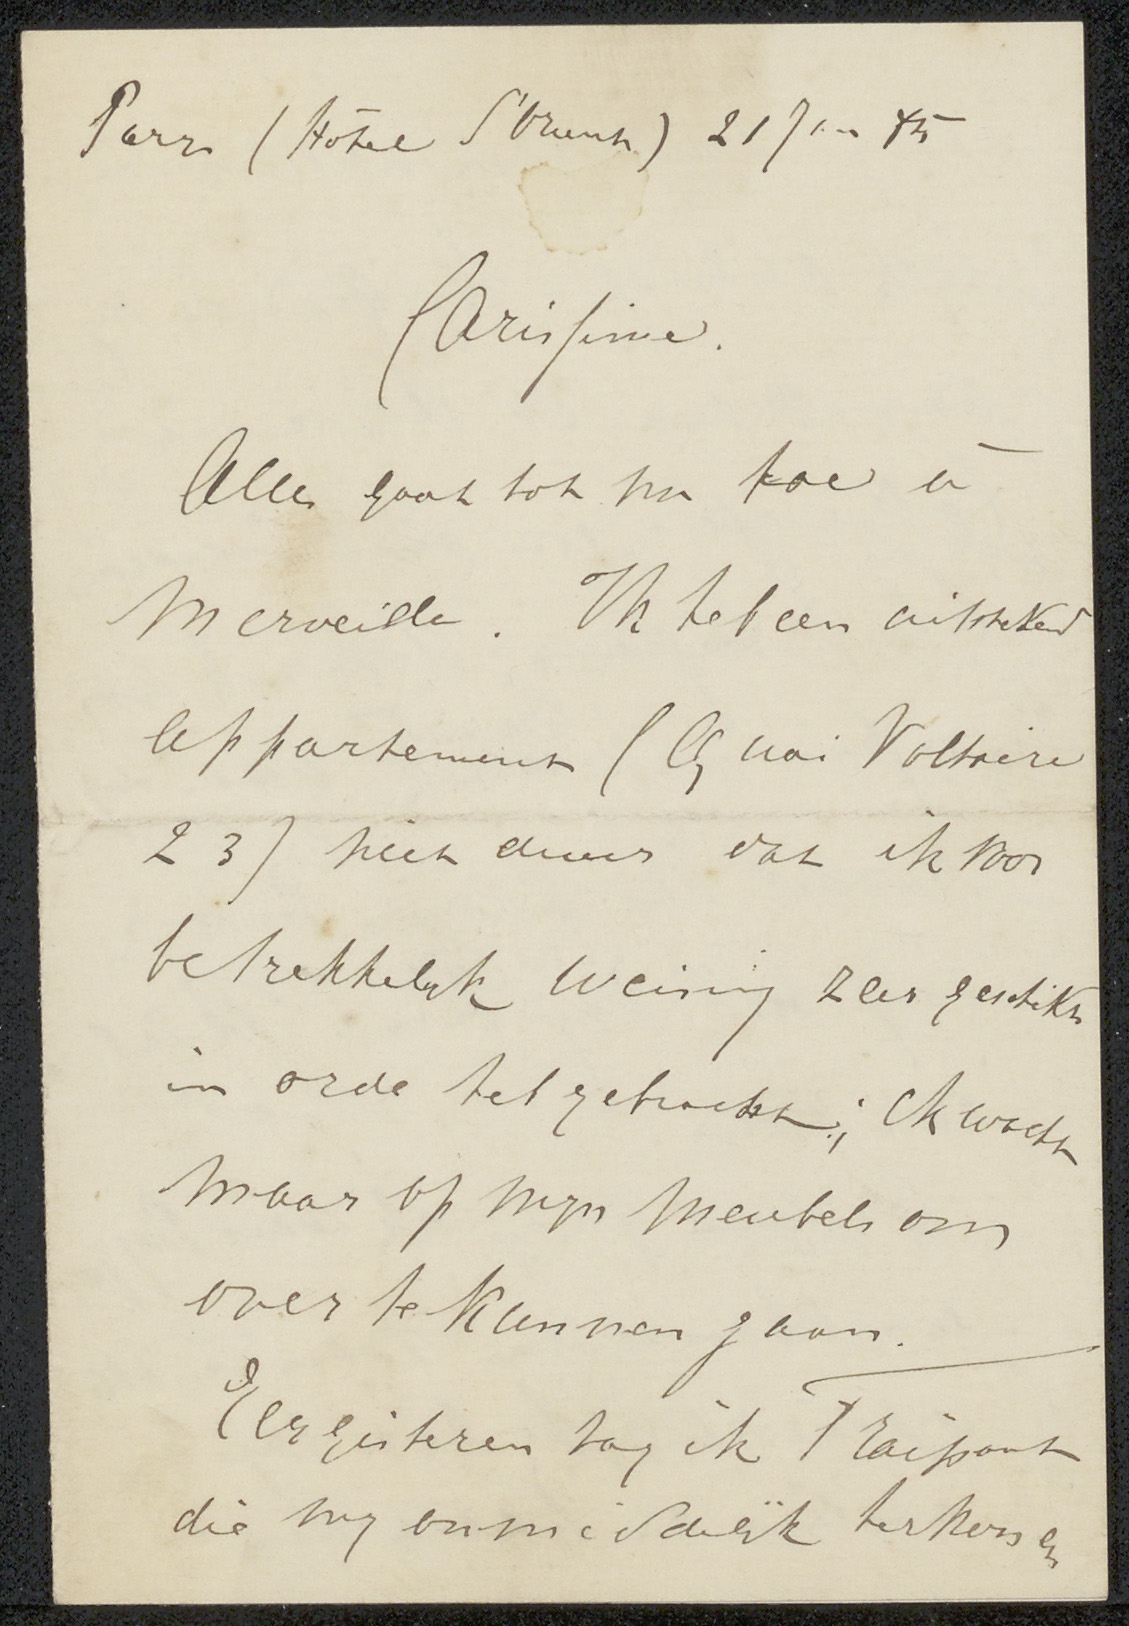 Parijs (Hôtel d'Orient) 21 Jan
Carissime.
Alles gaat tot nu toe à
Merveille. Ik heb een uitstekend
appartement (Quai Voltaire
23) niet duur dat ik voor
betrekkelijk weinig zeer geschikt
in orde heb gebracht; ik wacht
maar op mijn meubels om
over te kunnen gaan.
Eergisteren zag ik
die mij onmiddelijk herkende